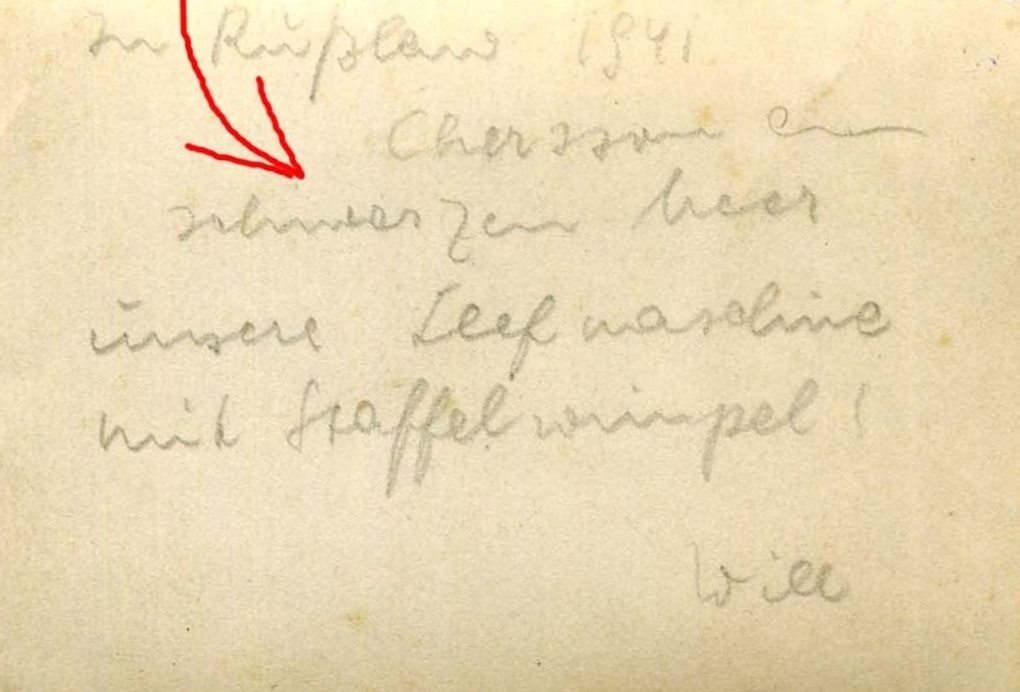 In Rußland 1941
Chersson am
schwarzen Meer
unsere Chefmaschine
mit Staffelwimpel!
Will